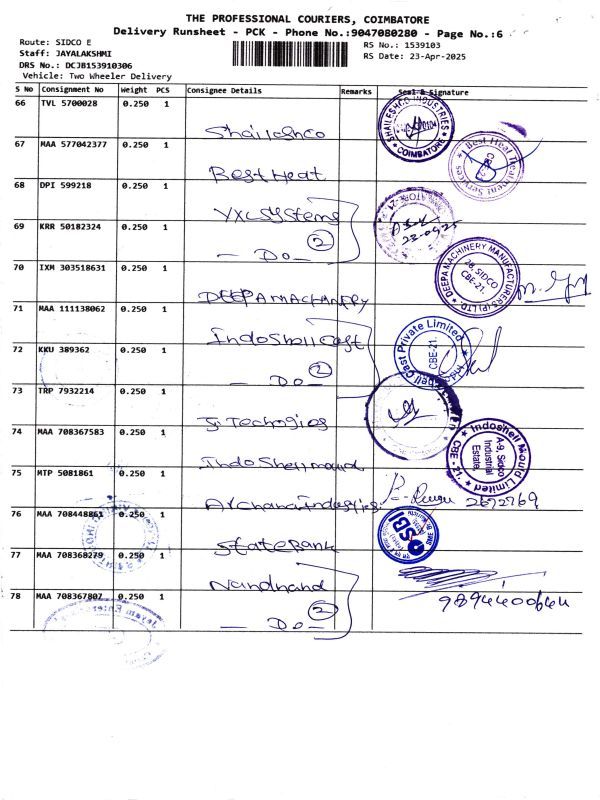 THE PROFESSIONAL COURIERS, COIMBATORE
Delivery Runsheet - PCK - Phone No.:9047080280 - Page No.:6
Route: SIDCO E
Staff: JAYALAKSHMI
DRS No.: DCJB153910306
Vehicle: Two Wheeler Delivery
RS No.: 1539103
RS Date: 23-Apr-2025
S No Consignment No Weight PCS Consignee Details Remarks Seal & Signature
66 TVL 5700028 0.250 1 Shaileshco
SHAILESHCO INDUSTRIES COIMBATORE
67 MAA 577042377 0.250 1 Best Heat
Best Heat Treatment Services
68 DPI 599218 0.250 1 YXC Systems
69 KRR 50182324 0.250 1 — Do — 2
23-04-25
70 IXM 303518631 0.250 1 DEEPA MACHINERY
DEEPA MACHINERY MANUFACTURERS (P) LTD. 28, SIDCO CBE-21.
71 MAA 111138062 0.250 1 Indo Shell Cast
72 KKU 389362 0.250 1 — Do — 2
Cast Private Limited CBE-21.
73 TRP 7932214 0.250 1
74 MAA 708367583 0.250 1 Indo Shell mould
Indoshell Mould Limited A-9, Sidco Industrial Estate, CBE-21.
75 MTP 5081861 0.250 1 Archana Industries
2672769
76 MAA 708448861 0.250 1 State Bank
SBI
77 MAA 708368279 0.250 1 Nandnand
78 MAA 708367807 0.250 1 — Do — 2